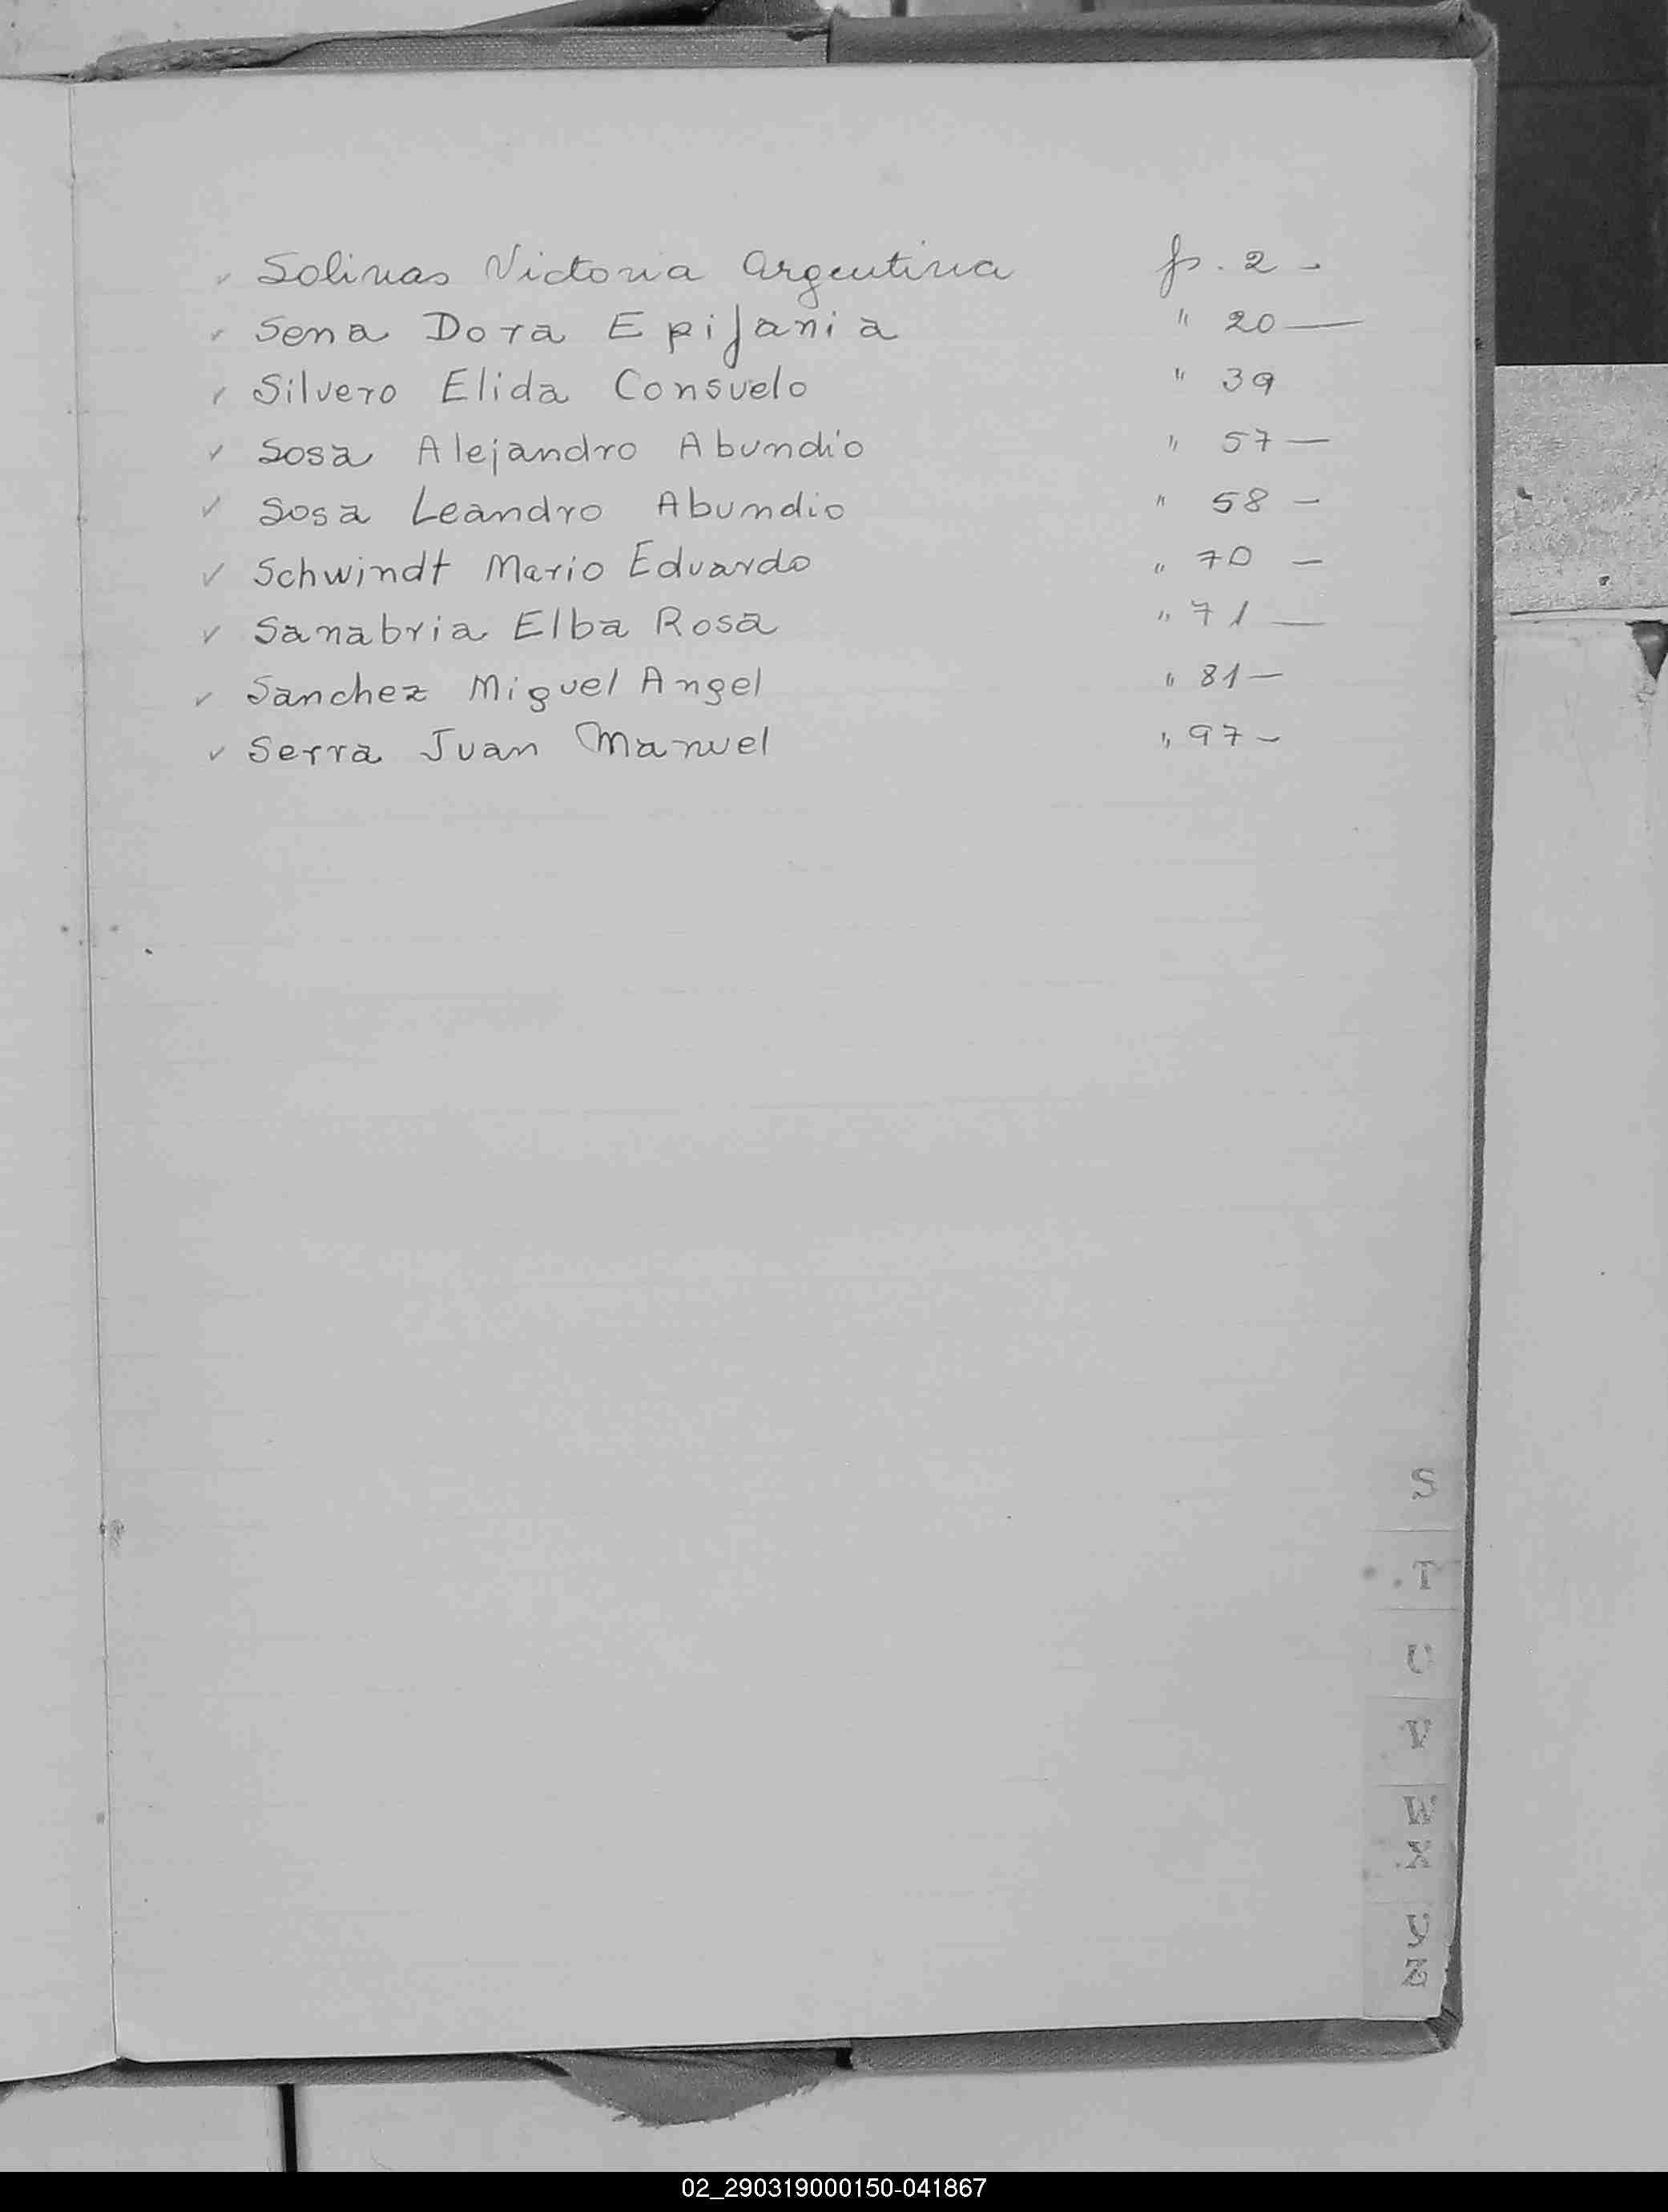 ✓ Solinas Victoria Argentina fs. 2 -
✓ Sena Dora Epifania " 20 —
✓ Silvero Elida Consuelo " 39
✓ Sosa Alejandro Abundio " 57 —
✓ Sosa Leandro Abundio " 58 —
✓ Schwindt Mario Eduardo " 70 —
✓ Sanabria Elba Rosa " 71 —
✓ Sanchez Miguel Angel " 81 —
✓ Serra Juan Manuel " 97 -
S
T
U
V
W
X
Y
Z
02_290319000150-041867